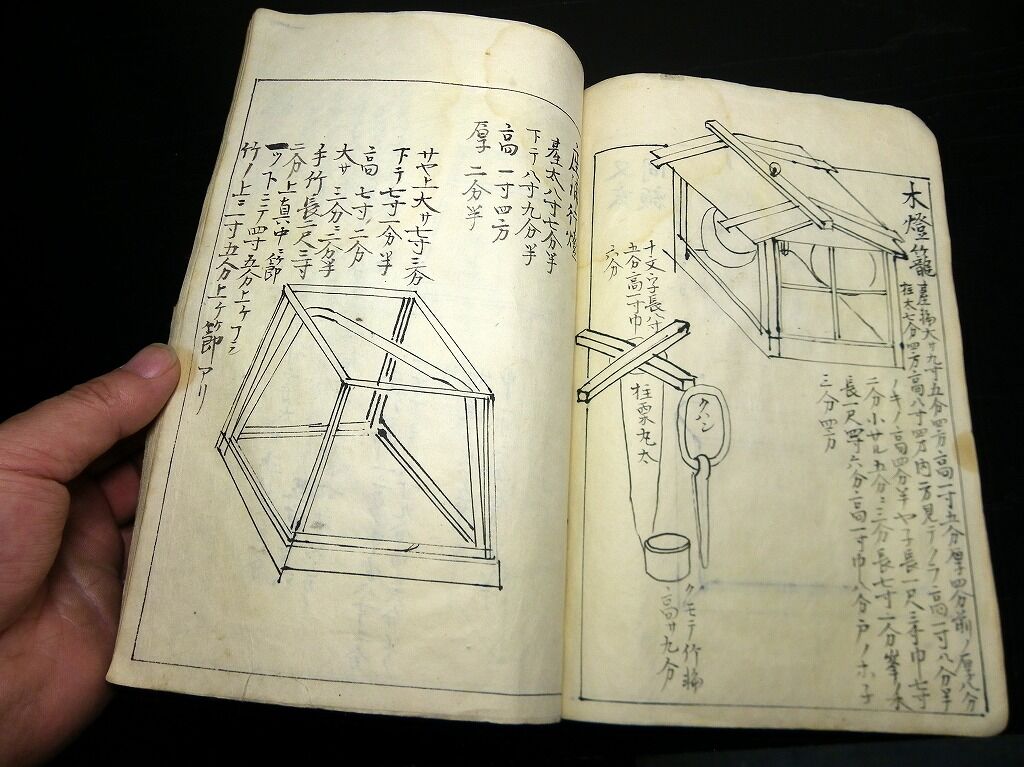 木燈籠
臺輪大サ九寸五分四方高一寸五分厚四分前ノ厚八分
柱太七分四方高八寸四分内方見テノラ高一寸八分半
ノキノ高四分半ヤ子長一尺三寸巾七寸
二分小サル五分ニ三分長七寸一分峯ノ木
長一尺四寸六分高一寸巾八分戸ノホ子
三分四方
十文字長サ寸
五分高一寸巾
六分
柱栗丸太
クハン
クモテ竹輪
高サ九分
行燈
臺太八寸七分半
下テ八寸九分半
高 一寸四方
厚 二分半
サヤ上大サ七寸三分
下テ七寸一分半
高 七寸二分
大サ 三分ニ二分半
手竹長二尺三寸
二分上真中ニ節
一ット二テ四寸五分上ケフシ
竹ノ上ニ一寸五分上ケ節アリ